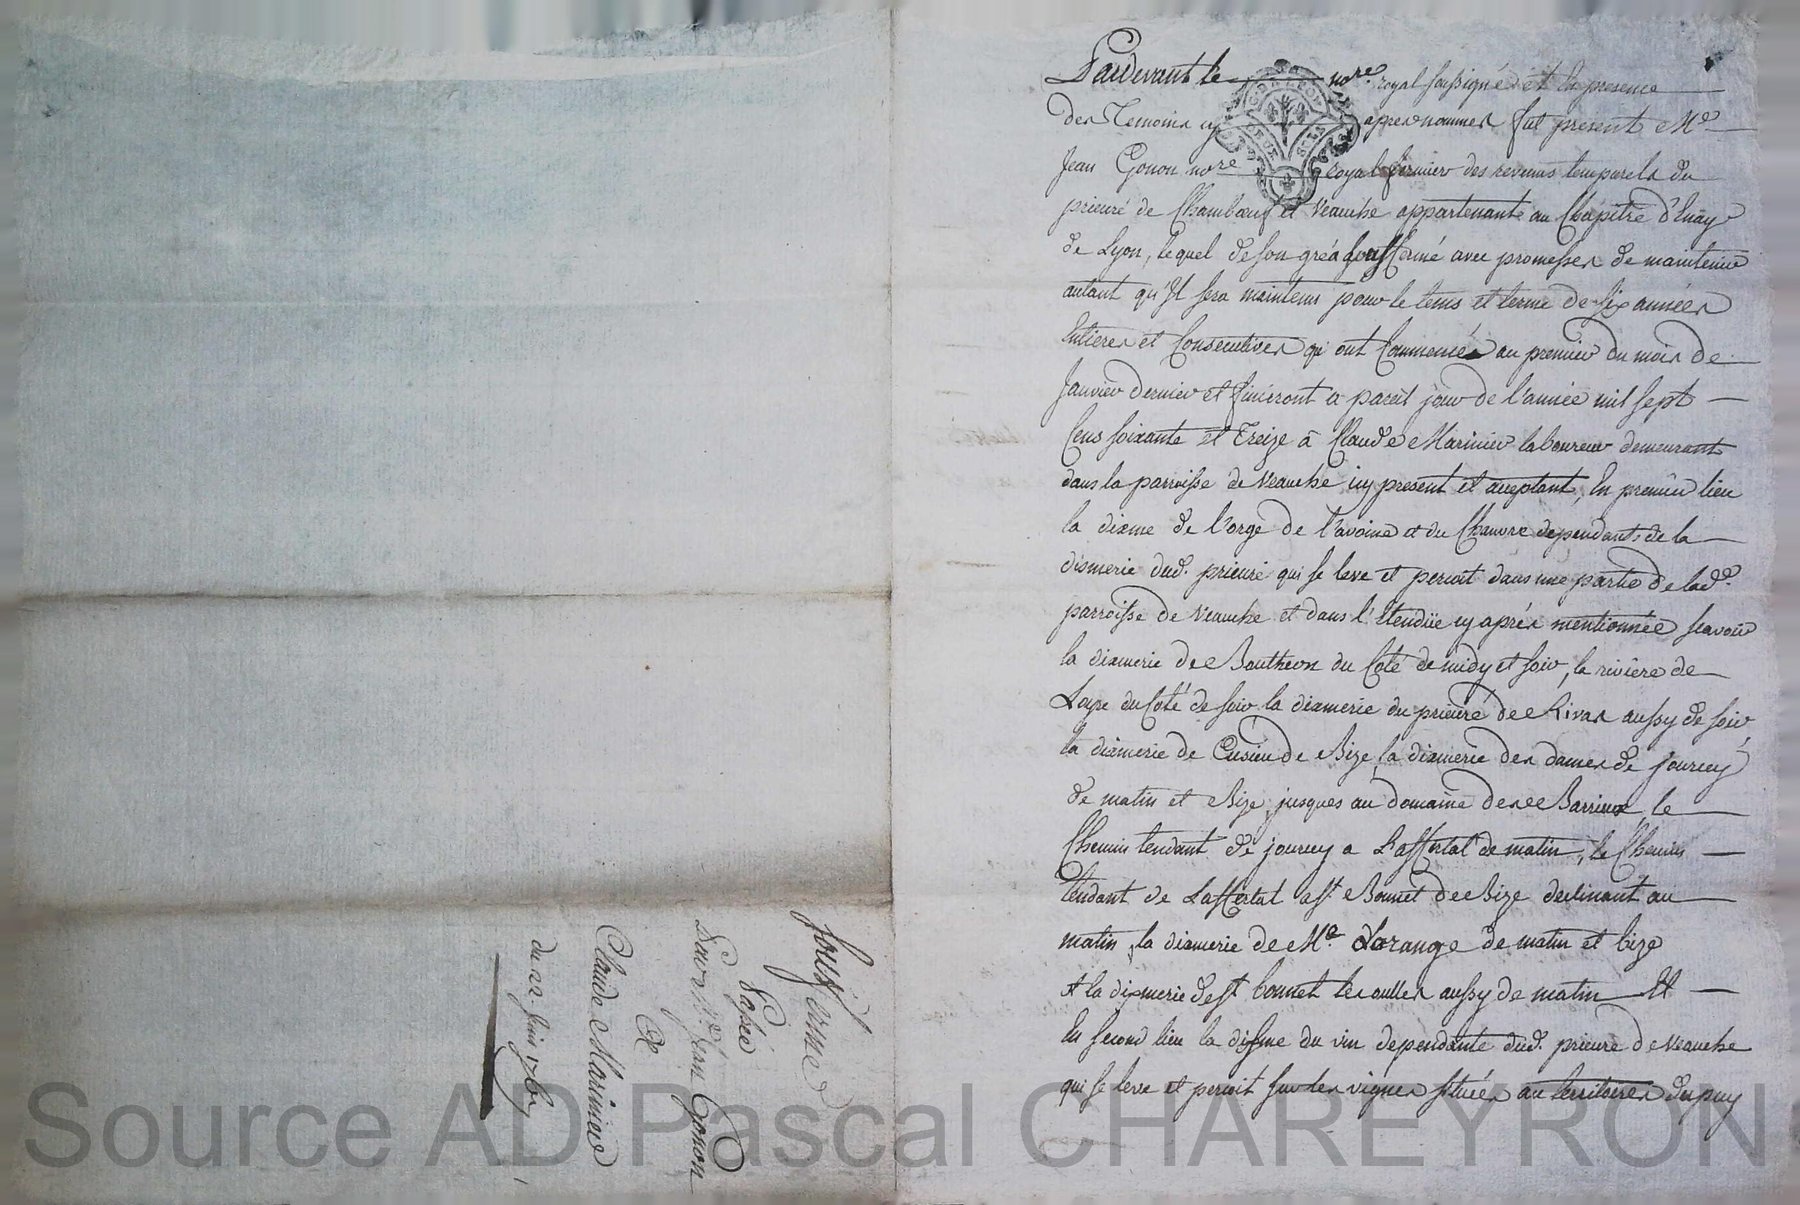 sousferme
Passée
Par Me. Jean Gonon
a
Claude Marinier
du 22 juin 176
Pardevant le nore. royal soussigné et En presence
des Temoins cy apres nommés fut présent Me
Jean Gonon nore royal fermier des revenus temporels du
prieuré de Chambœuf et Veauche appartenants au Chapitre d'Enay
de Lyon, lequel de son gré a sousfermé avec promesses de maintenir
autant qu'Il sera maintenu pour le tems et terme de six années
Entieres et Consecutives qui ont Commencés au premier du mois de
Janvier dernier et finiront a pareil jour de l'année mil sept
Cens soixante et Treize à Claude Marinier laboureur demeurant
dans la parroisse de Veauche icy present et acceptant, En premier lieu
la dixme de l'orge de l'avoine et du Chanvre dependants de la
dismerie dud. prieuré qui se leve et percoit dans une partie de lade.
parroisse de Veauche et dans l'Etendüe cy aprés mentionnée scavoir
la dixmerie de Boutheon du Coté de midy et soir, la riviere de
Loire du Coté de soir la dixmerie du prieuré de Rivas aussy de soir,
la dixmerie de Cusieu de Bize, la dixmerie des dames de jourcey
de matin et Bize, jusques au domaine des Barrieux, le
Chemin tendant de jourcey a Laffertal de matin, le Chemin
tendant de Laffertal a St Bonnet de Bize declinant au
matin, la dixmerie de Me. Lorange de matin et bize
et la dixmerie de St bonnet les oulles aussy de matin Et
En second lieu la disme du vin dependante dud. prieuré de Veauche
qui se leve et percoit sur les vignes situées au territoires du puy
Source AD Pascal CHAREYRON